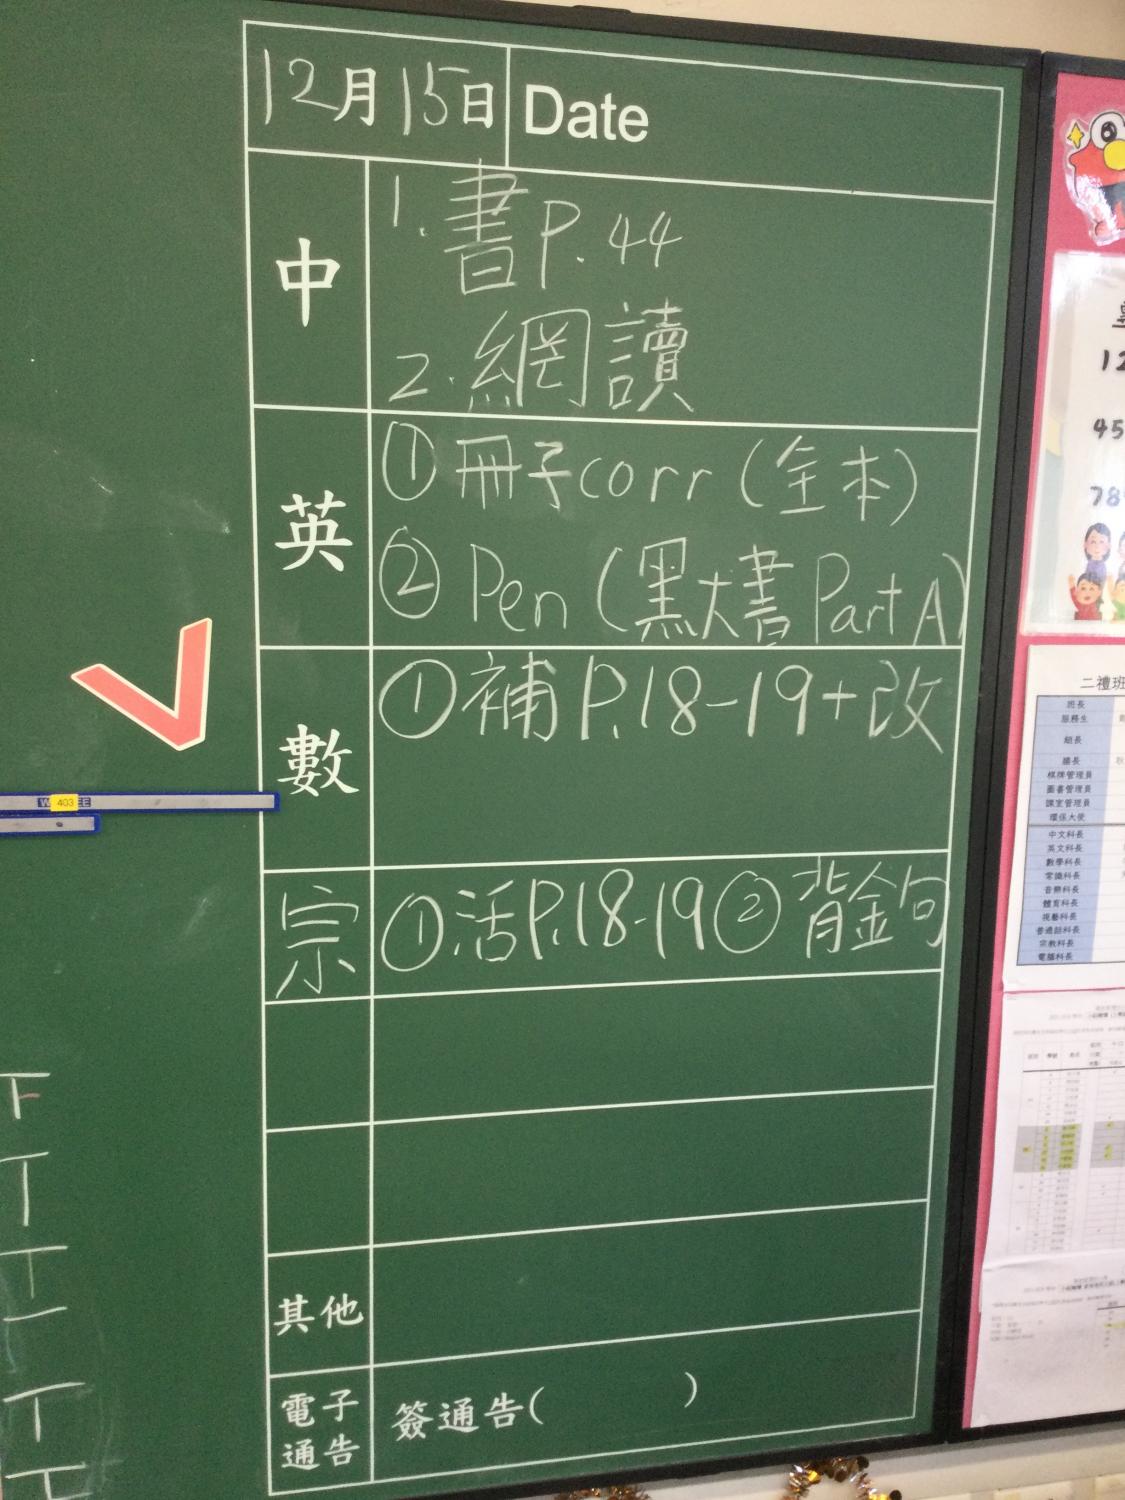 12月15日 Date
中
1. 書P.44
2. 網讀
英
① 冊子corr (全本)
② Pen (黑大書 Part A)
數
① 補 P.18-19+改
宗
① 活P.18-19 ② 背金句
其他
電子
通告
簽通告( )
403
二禮班
班長
服務生
組長
膳長
棋牌管理員
圖書管理員
課室管理員
環保大使
中文科長
英文科長
數學科長
常識科長
音樂科長
體育科長
視藝科長
普通話科長
宗教科長
電腦科長
12
45
78